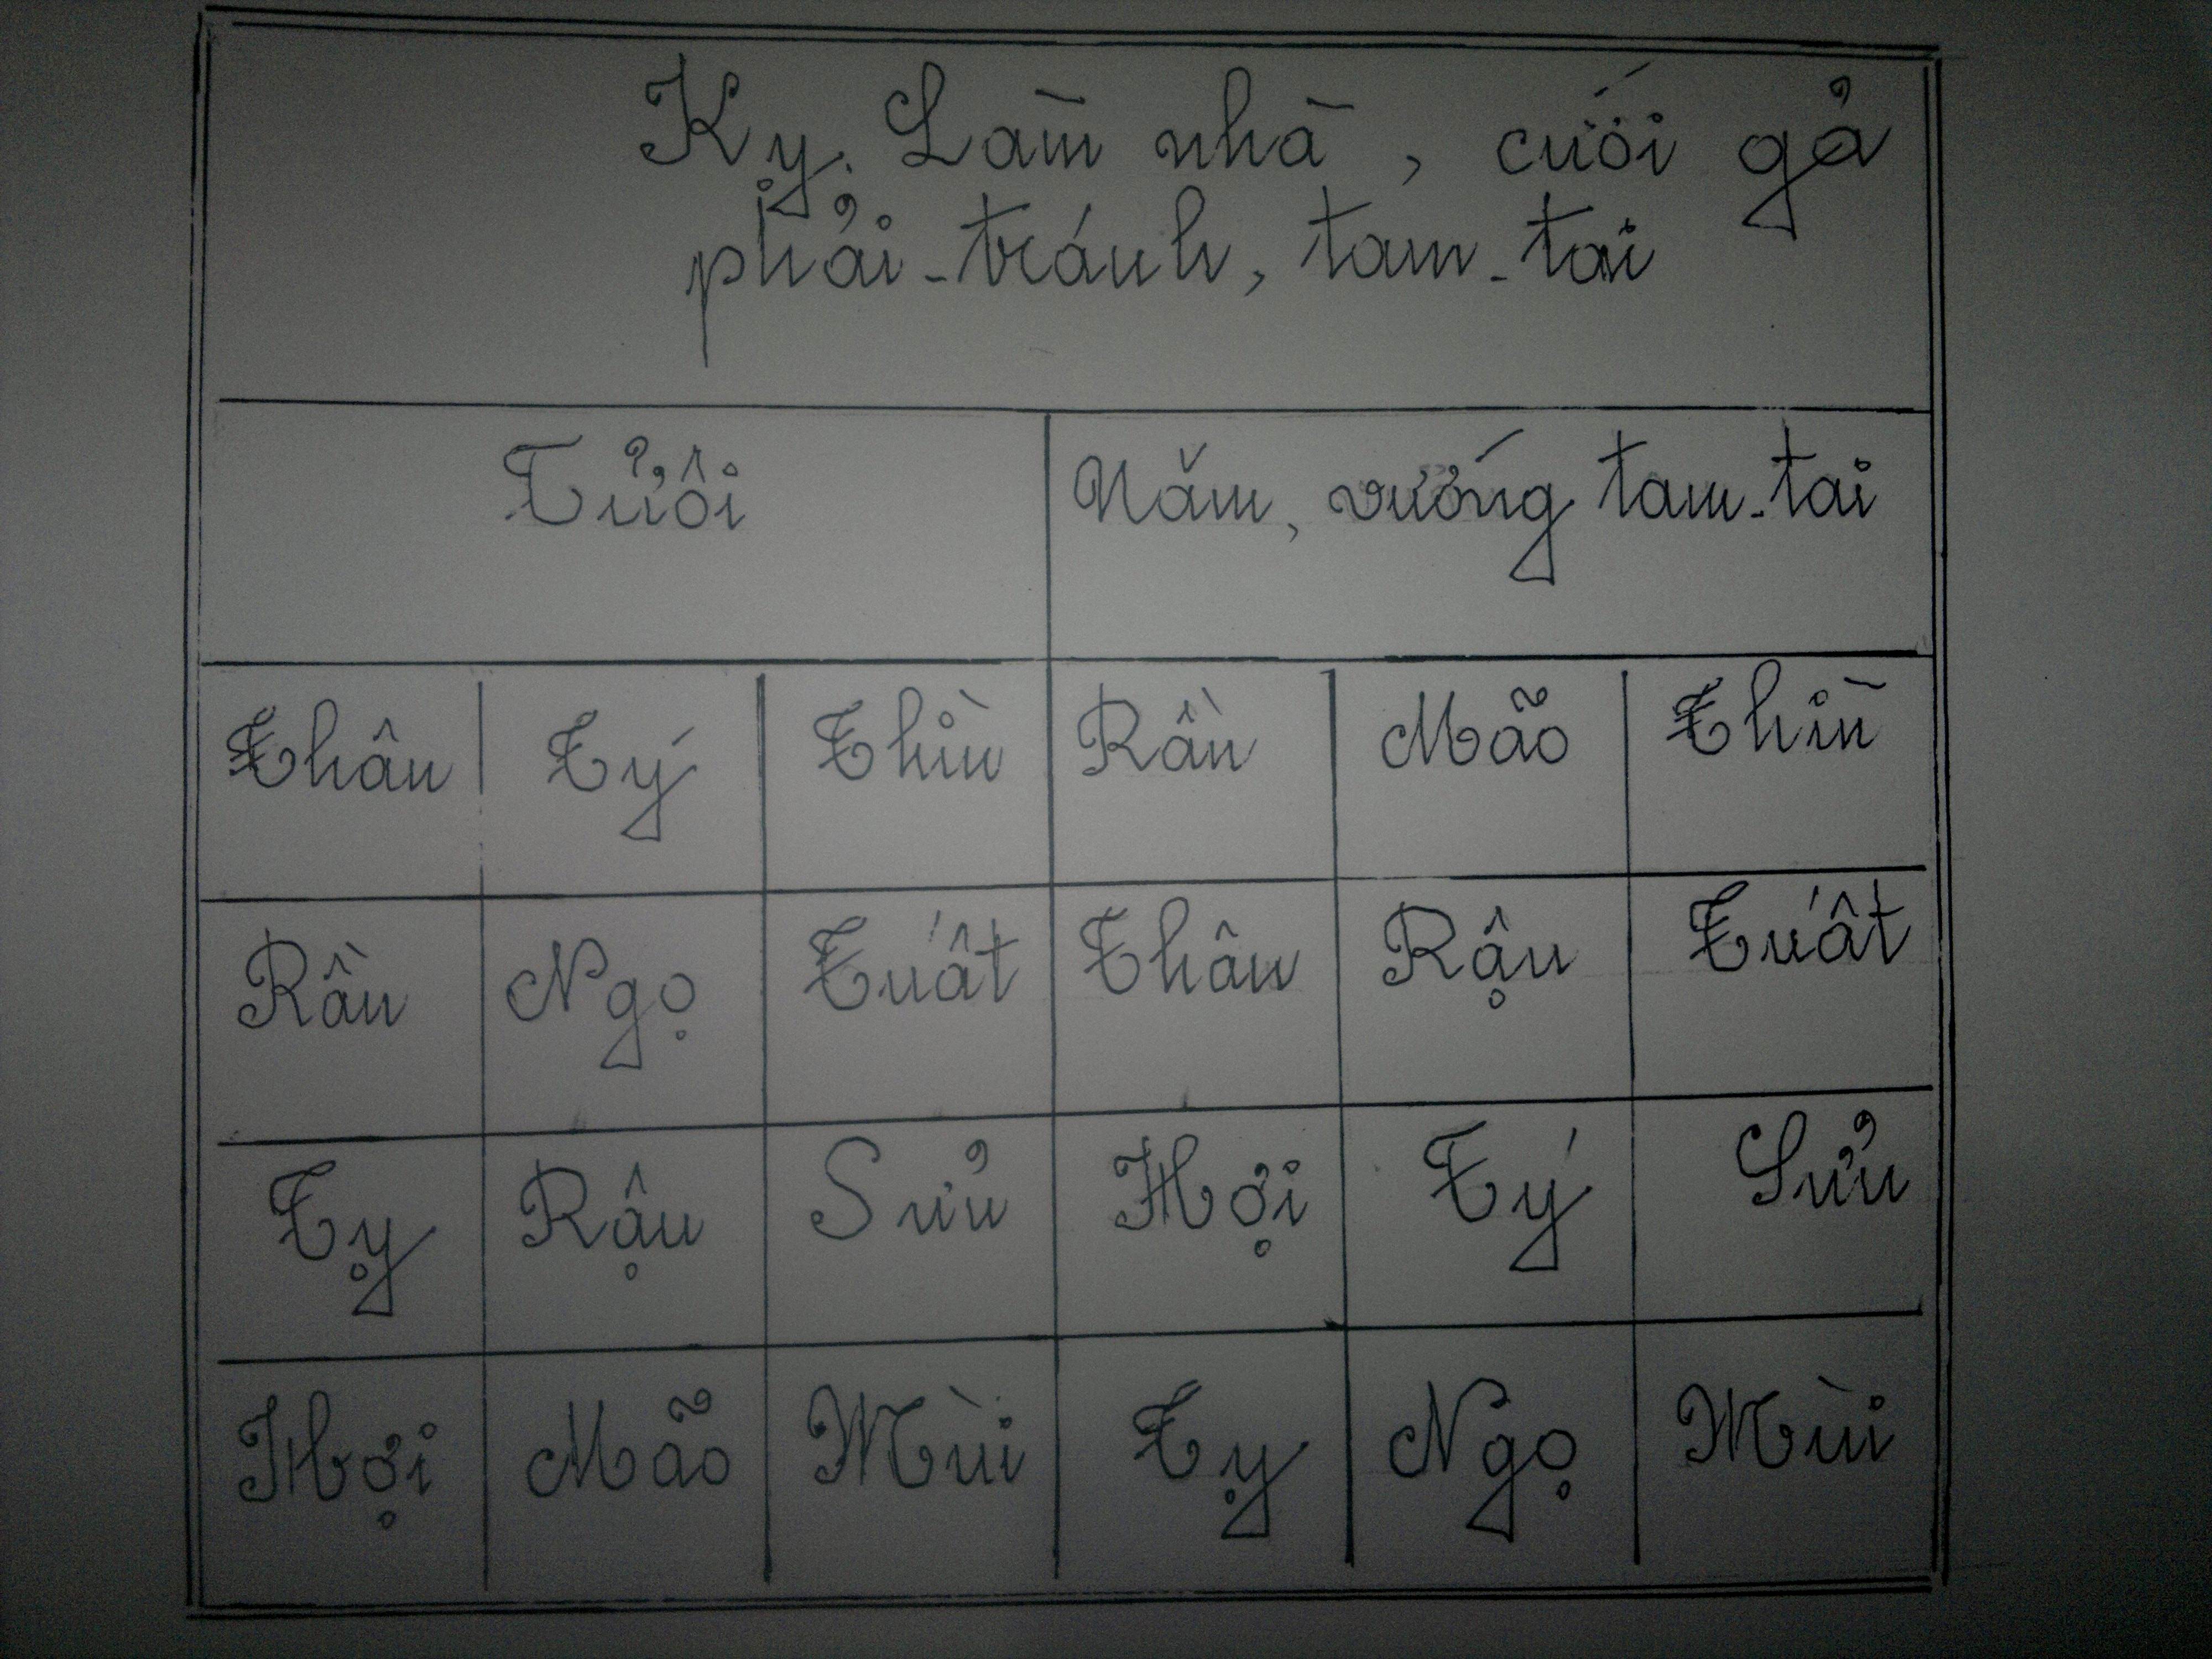 Kỵ. Làm nhà, cưới gả
phải-tránh, tam-tai
Tưởi Năm, vướng tam-tai
Thân Tý Thìn Rần Mão Thìn
Rần Ngọ Tuất Thân Rậu Tuất
Tỵ Rậu Sưủ Hợi Tý Sưủ
Hợi Mão Mùi Tỵ Ngọ Mùi